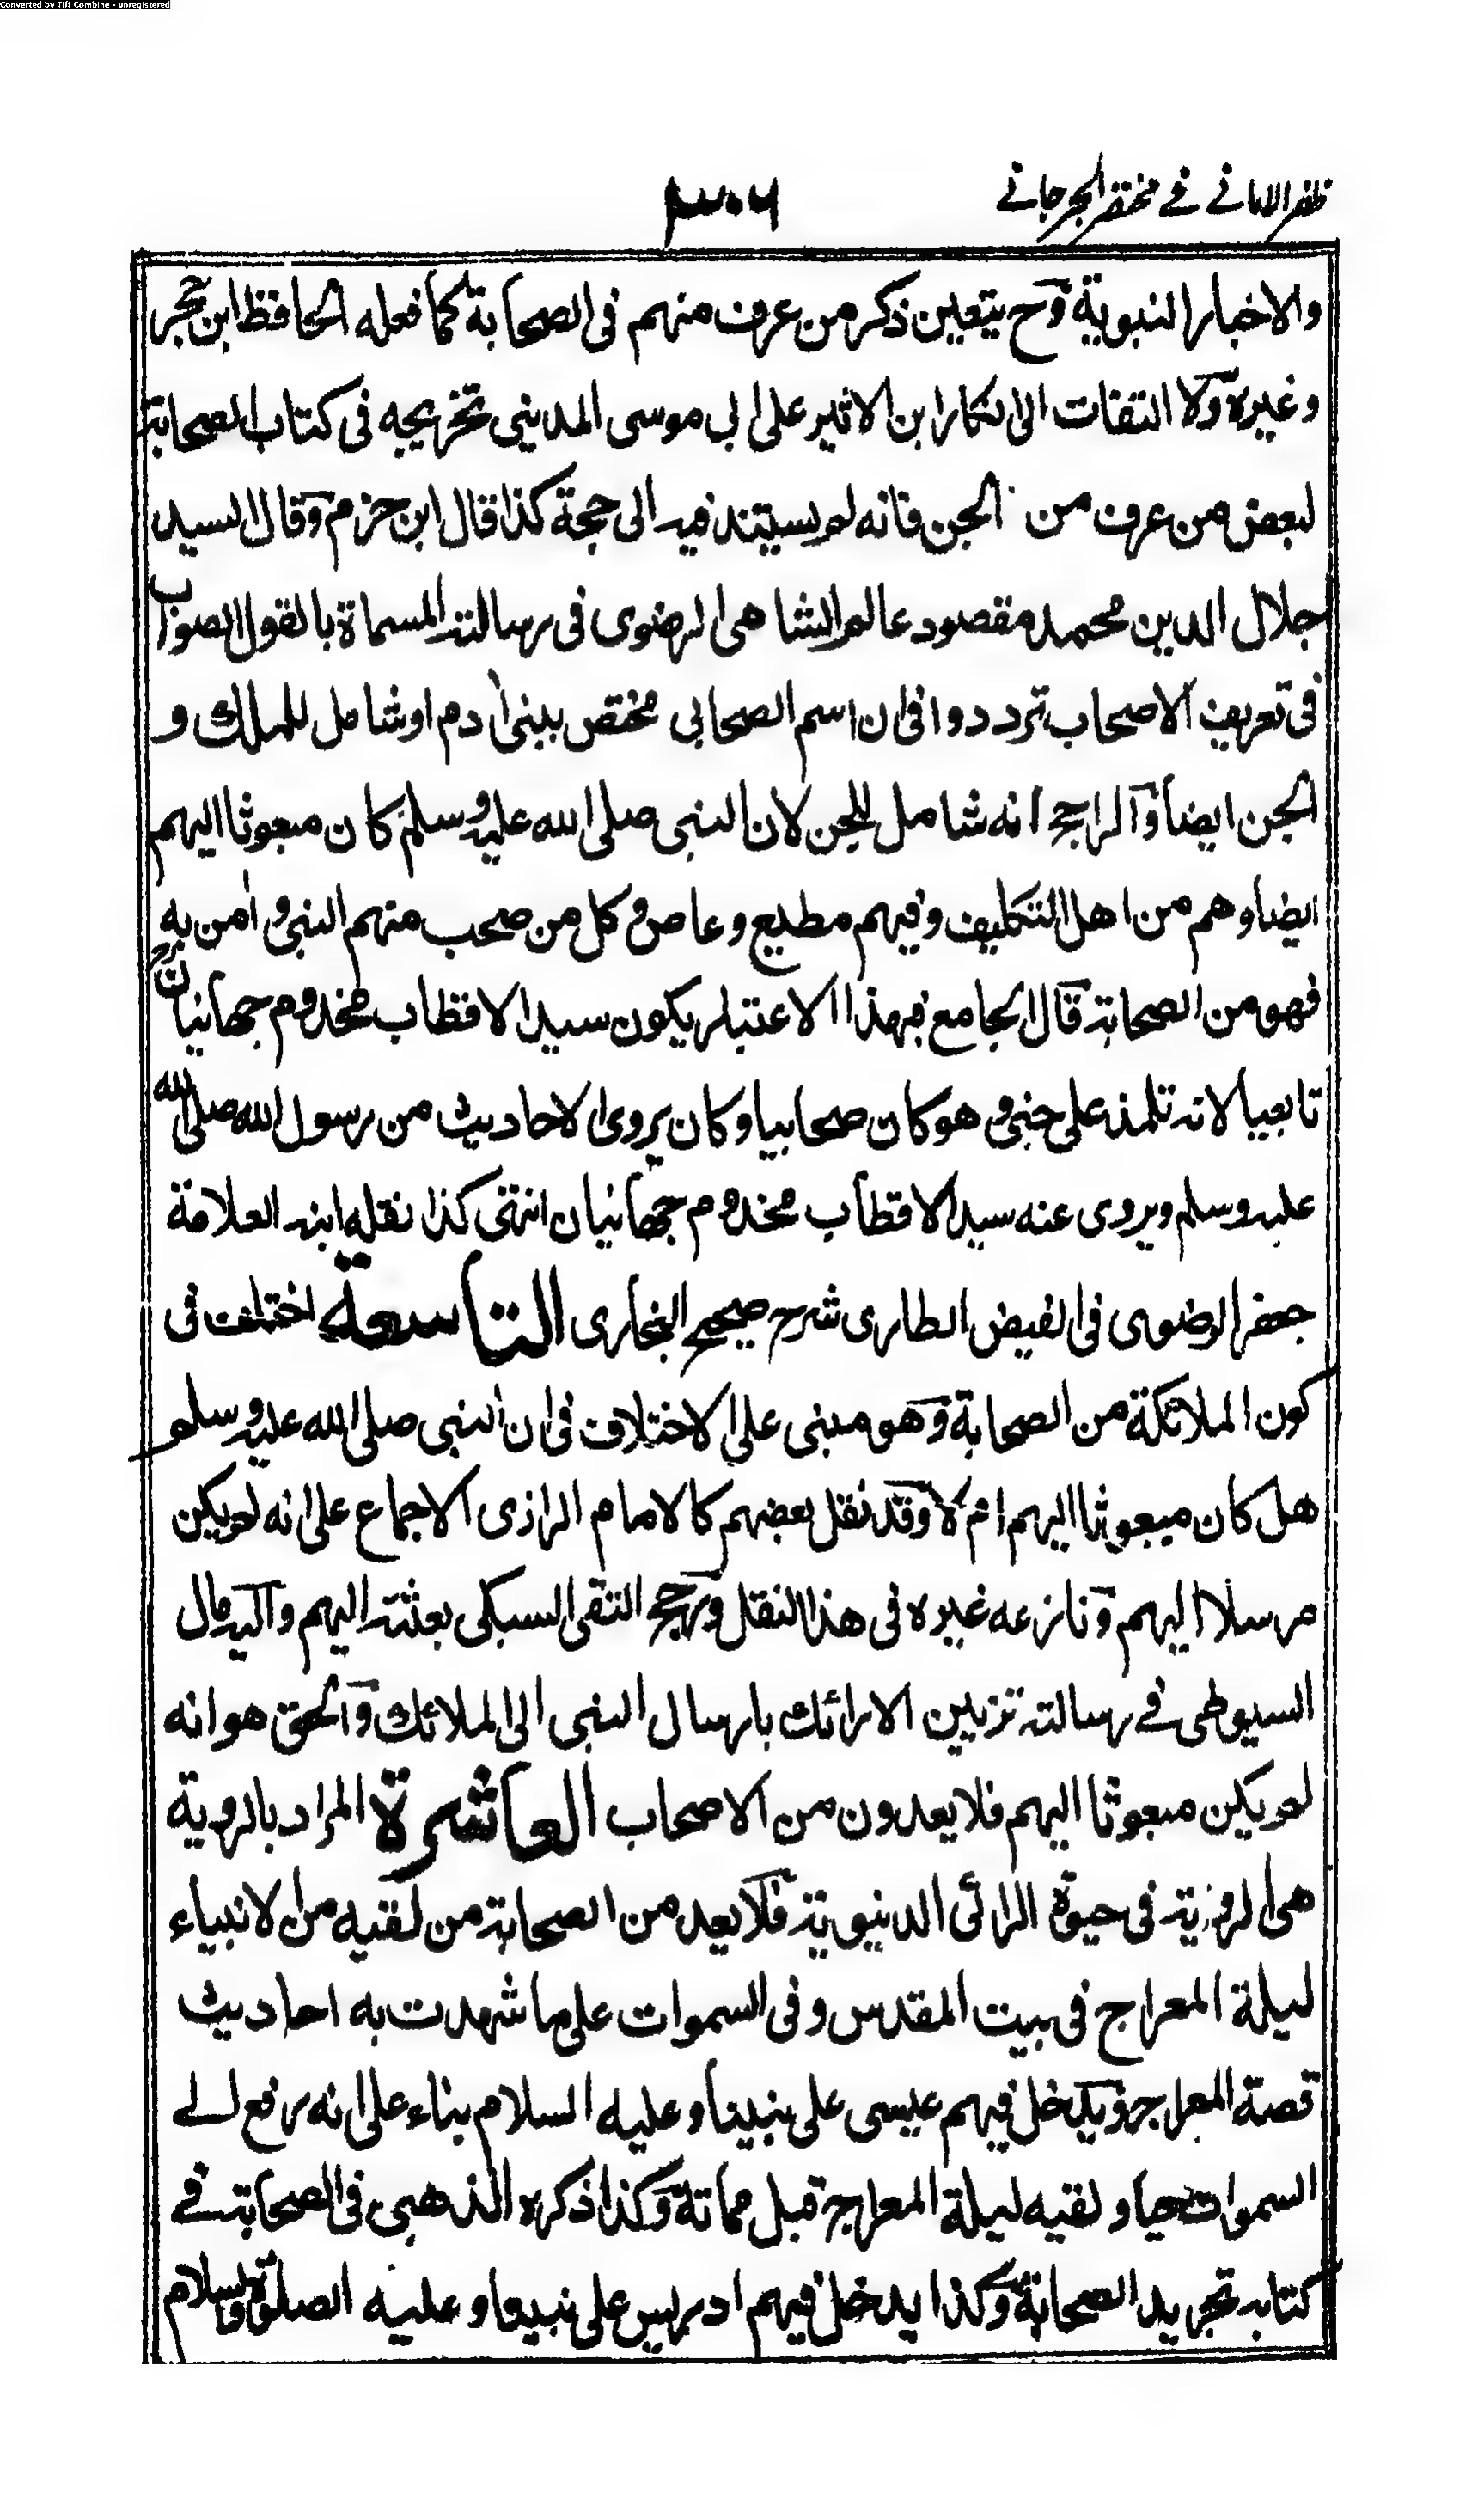 Converted by Tiff Combine - unregistered
ظفر الامانی فی مختصر الجرجانی
٣٠٦
والاخبار النبوية وح يتعين ذكر من عرف منهم فى الصحابة كما فعله الحافظ ابن حجر
وغيره ولا التفات الى انكار ابن الاثير على ابى موسى المدينى تخريجه فى كتاب الصحابة
لبعض من عرف من الجن فانه لم يستند فيه الى حجة كذا قال ابن حزم وقال السيد
جلال الدين محمد مقصود عالم الشاهى الرضوى فى رسالته المسماة بالقول الصواب
فى تعريف الاصحاب ترددوا فى ان اسم الصحابى مختص ببنى أدم او شامل للملك و
الجن ايضا والراجح انه شامل للجن لان النبى صلى الله عليه وسلم كان مبعوثا اليهم
ايضا وهم من اهل التكليف وفيهم مطيع وعاص وكل من صحب منهم النبى وأمن به
فهو من الصحابة قال الجامع فبهذا الاعتبار يكون سيد الاقطاب مخدوم جهانيان
تابعيا لانه تلمذ على جنى وهو كان صحابيا وكان يروى الاحاديث من رسول الله صلى الله
عليه وسلم ويروى عنه سيد الاقطاب مخدوم جهانيان انتهى كذا نقله ابنه العلامة
جعفر الرضوى فى الفيض الطارى شرح صحيح البخارى التاسعة اختلف فى
كون الملائكة من الصحابة وهو مبنى على الاختلاف فى ان النبى صلى الله عليه وسلم
هل كان مبعوثا اليهم ام لا وقد نقل بعضهم كالامام الرازى الاجماع على انه لم يكن
مرسلا اليهم ونازعه غيره فى هذا النقل ورجح التقى السبكى بعثته اليهم واليه مال
السيوطى فى رسالته تزيين الارائك بارسال النبى الى الملائك والحق هو انه
لم يكن مبعوثا اليهم فلا يعدون من الاصحاب العاشرة المراد بالروية
هى الروية فى حيوة الرائى الدنيوية فلا يعد من الصحابة من لقيه من الانبياء
ليلة المعراج فى بيت المقدس وفى السموات على ما شهدت به احاديث
قصة المعراج ويدخل فيهم عيسى على نبينا وعليه السلام بناء على انه رفع الى
السموات حيا ولقيه ليلة المعراج قبل مماتة وكذا ذكره الذهبى فى الصحابة فى
كتابه تجريد الصحابة وكذا يدخل فيهم ادريس على نبينا وعليه الصلوة والسلام